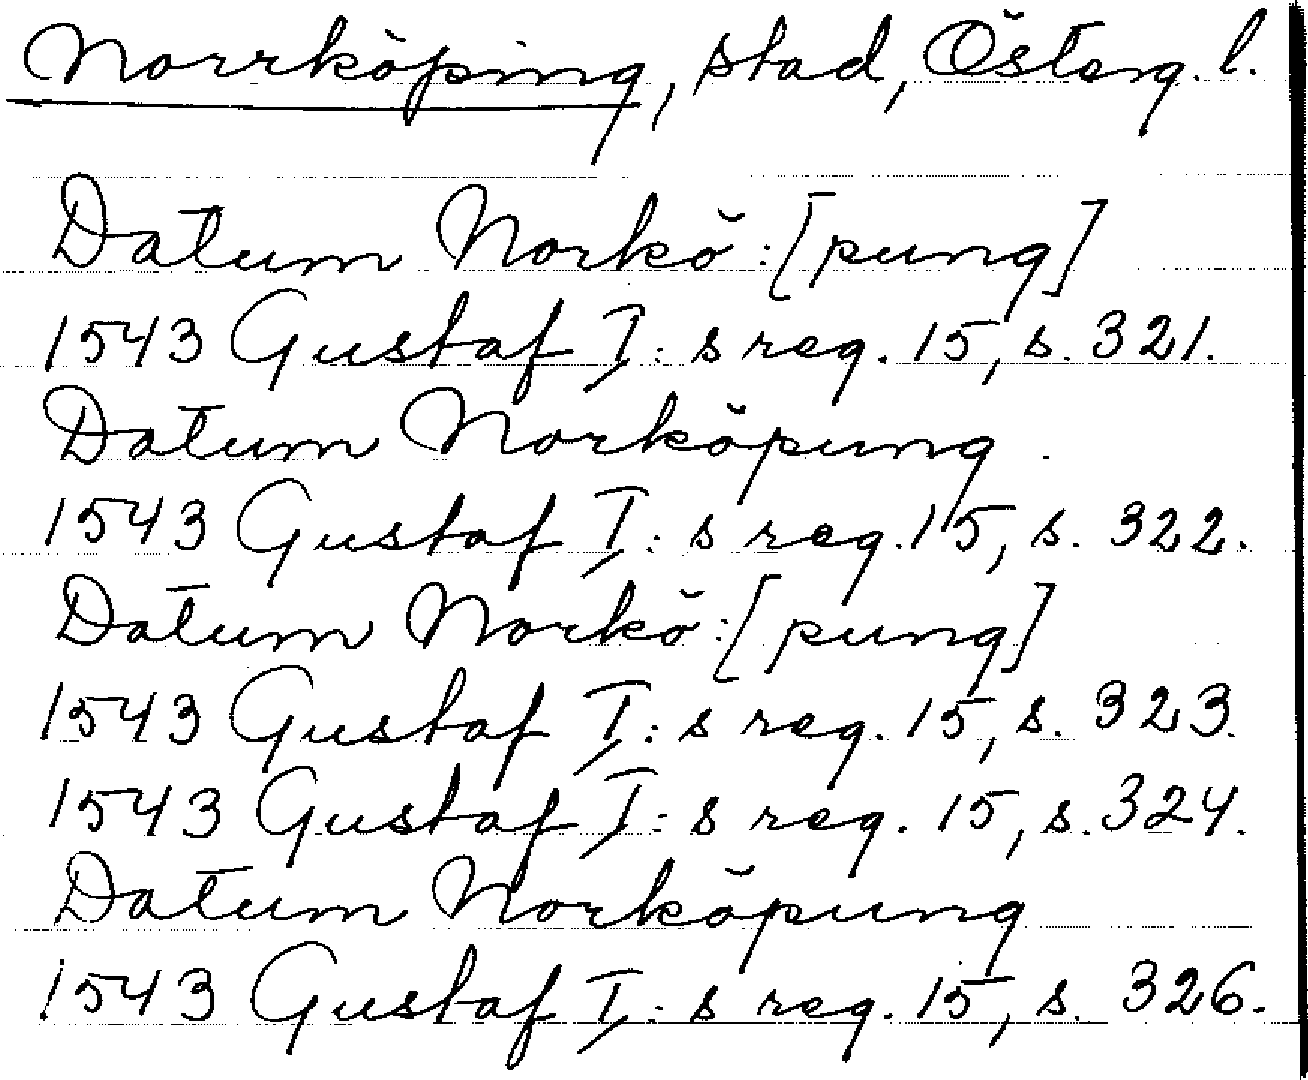 Norrköping, stad, Österg. l.
Datum Norkö:[pung]
1543 Gustaf I:s reg. 15, s. 321.
Datum Norköpung.
1543 Gustaf I:s reg. 15, s. 322.
Datum Norkö:[pung]
1543 Gustaf I:s reg. 15, s. 323.
1543 Gustaf I:s reg. 15, s. 324.
Datum Norköpung
1543 Gustaf I:s reg. 15, s. 326.